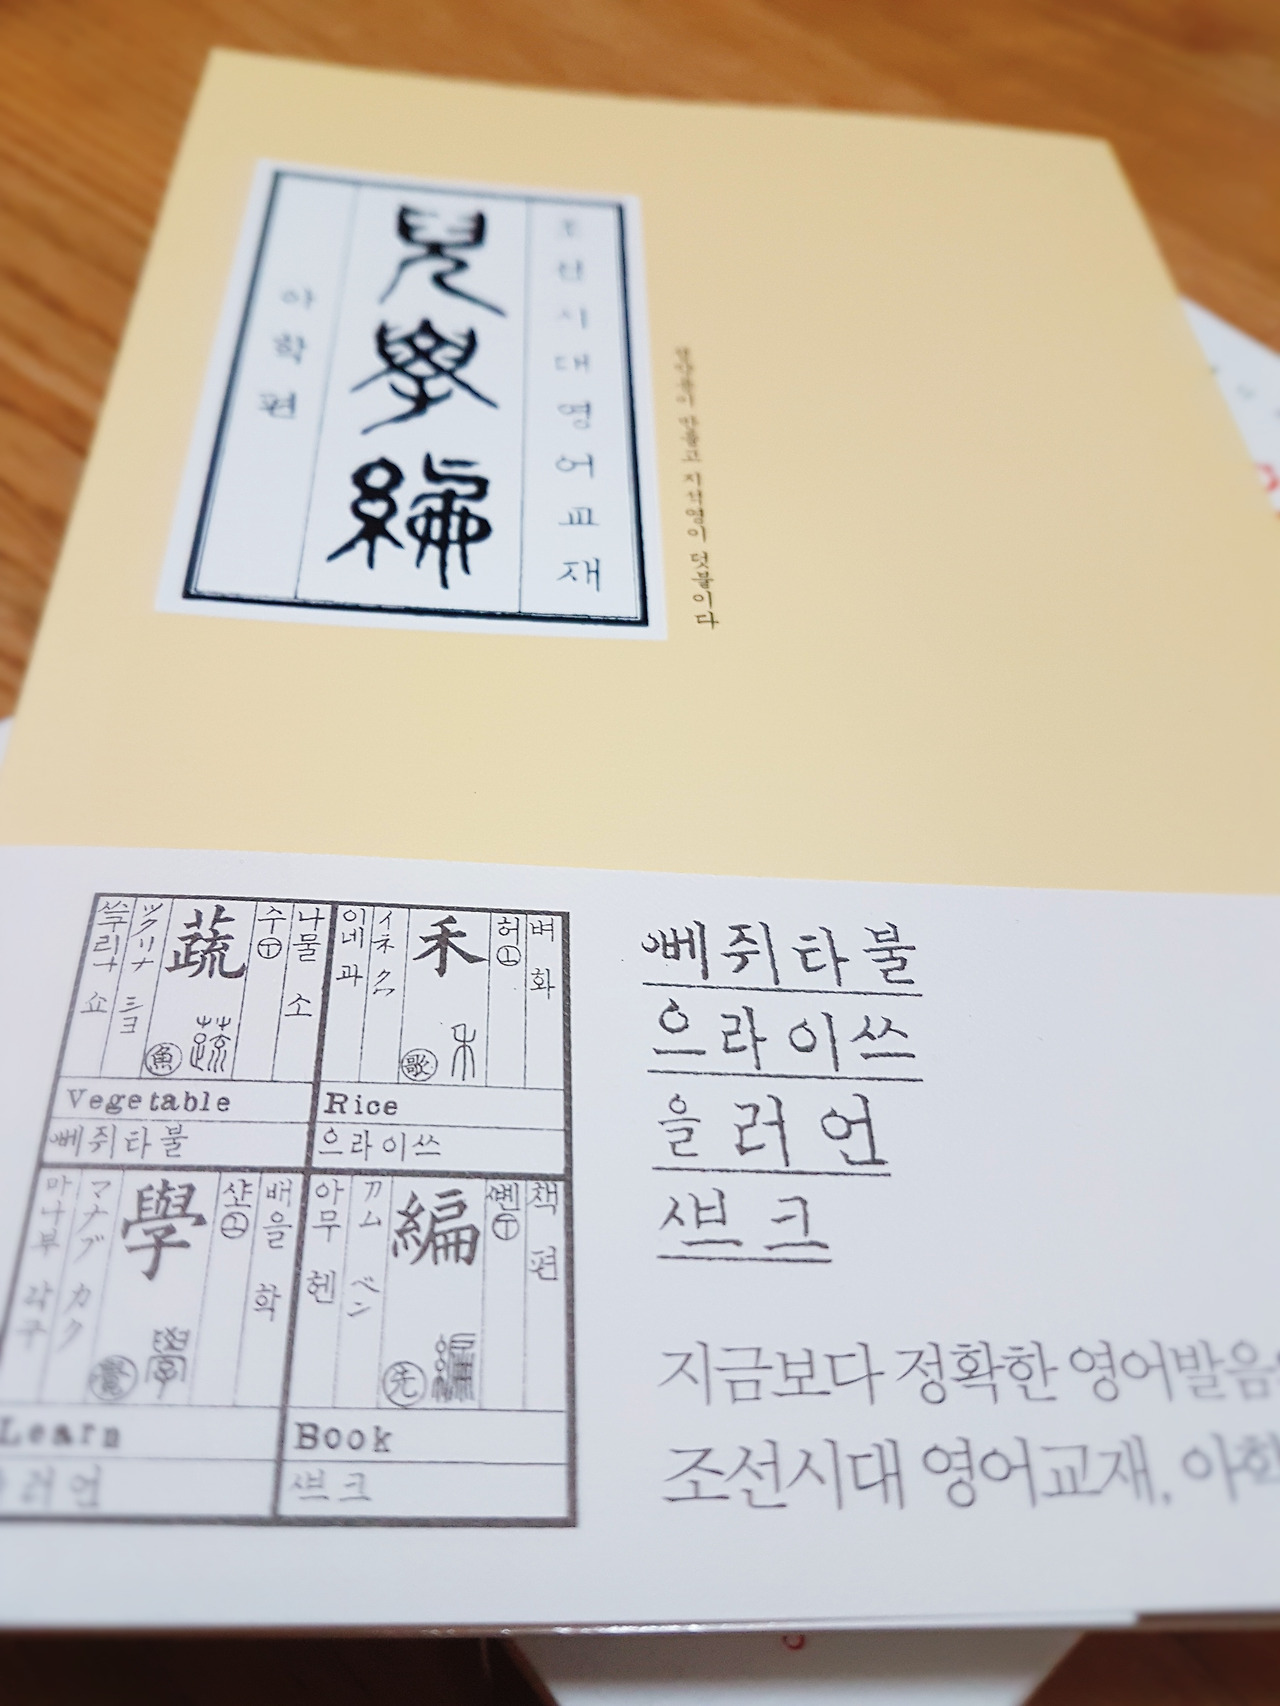 조선시대영어교재
兒學編
아학편
정약용이 만들고 지석영이 덧붙이다
나물 소
수
蔬
蔬
魚
ツクリナ ミヨ
Vegetable
쎄쥐타불
벼 화
허
禾
禾
歌
イネ クㇵ
이네 과
Rice
으라이쓰
배울 학
學
學
覺
マナブ カク
마나부 각구
Learn
러언
책 편
編
編
先
アム ペン
아무 헨
Book
크
쎄쥐타불
으라이쓰
을러언
크
지금보다 정확한 영어발음
조선시대 영어교재,